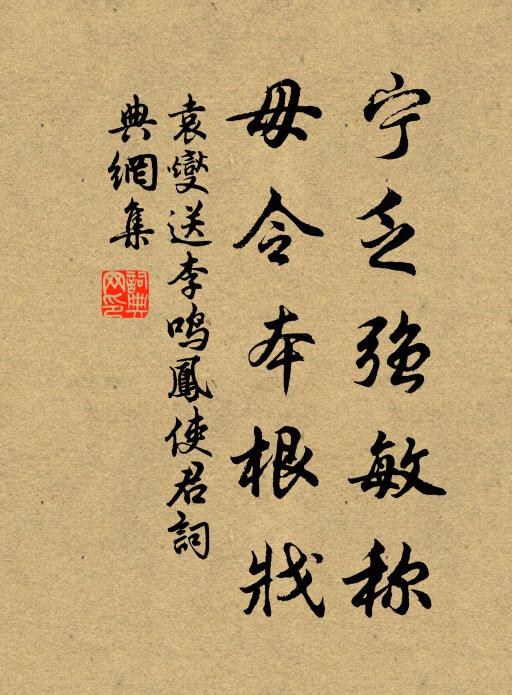 宁乏强敏称
毋令本根戕
袁燮送李鸣鳳使君詞
典網集
詞典网印